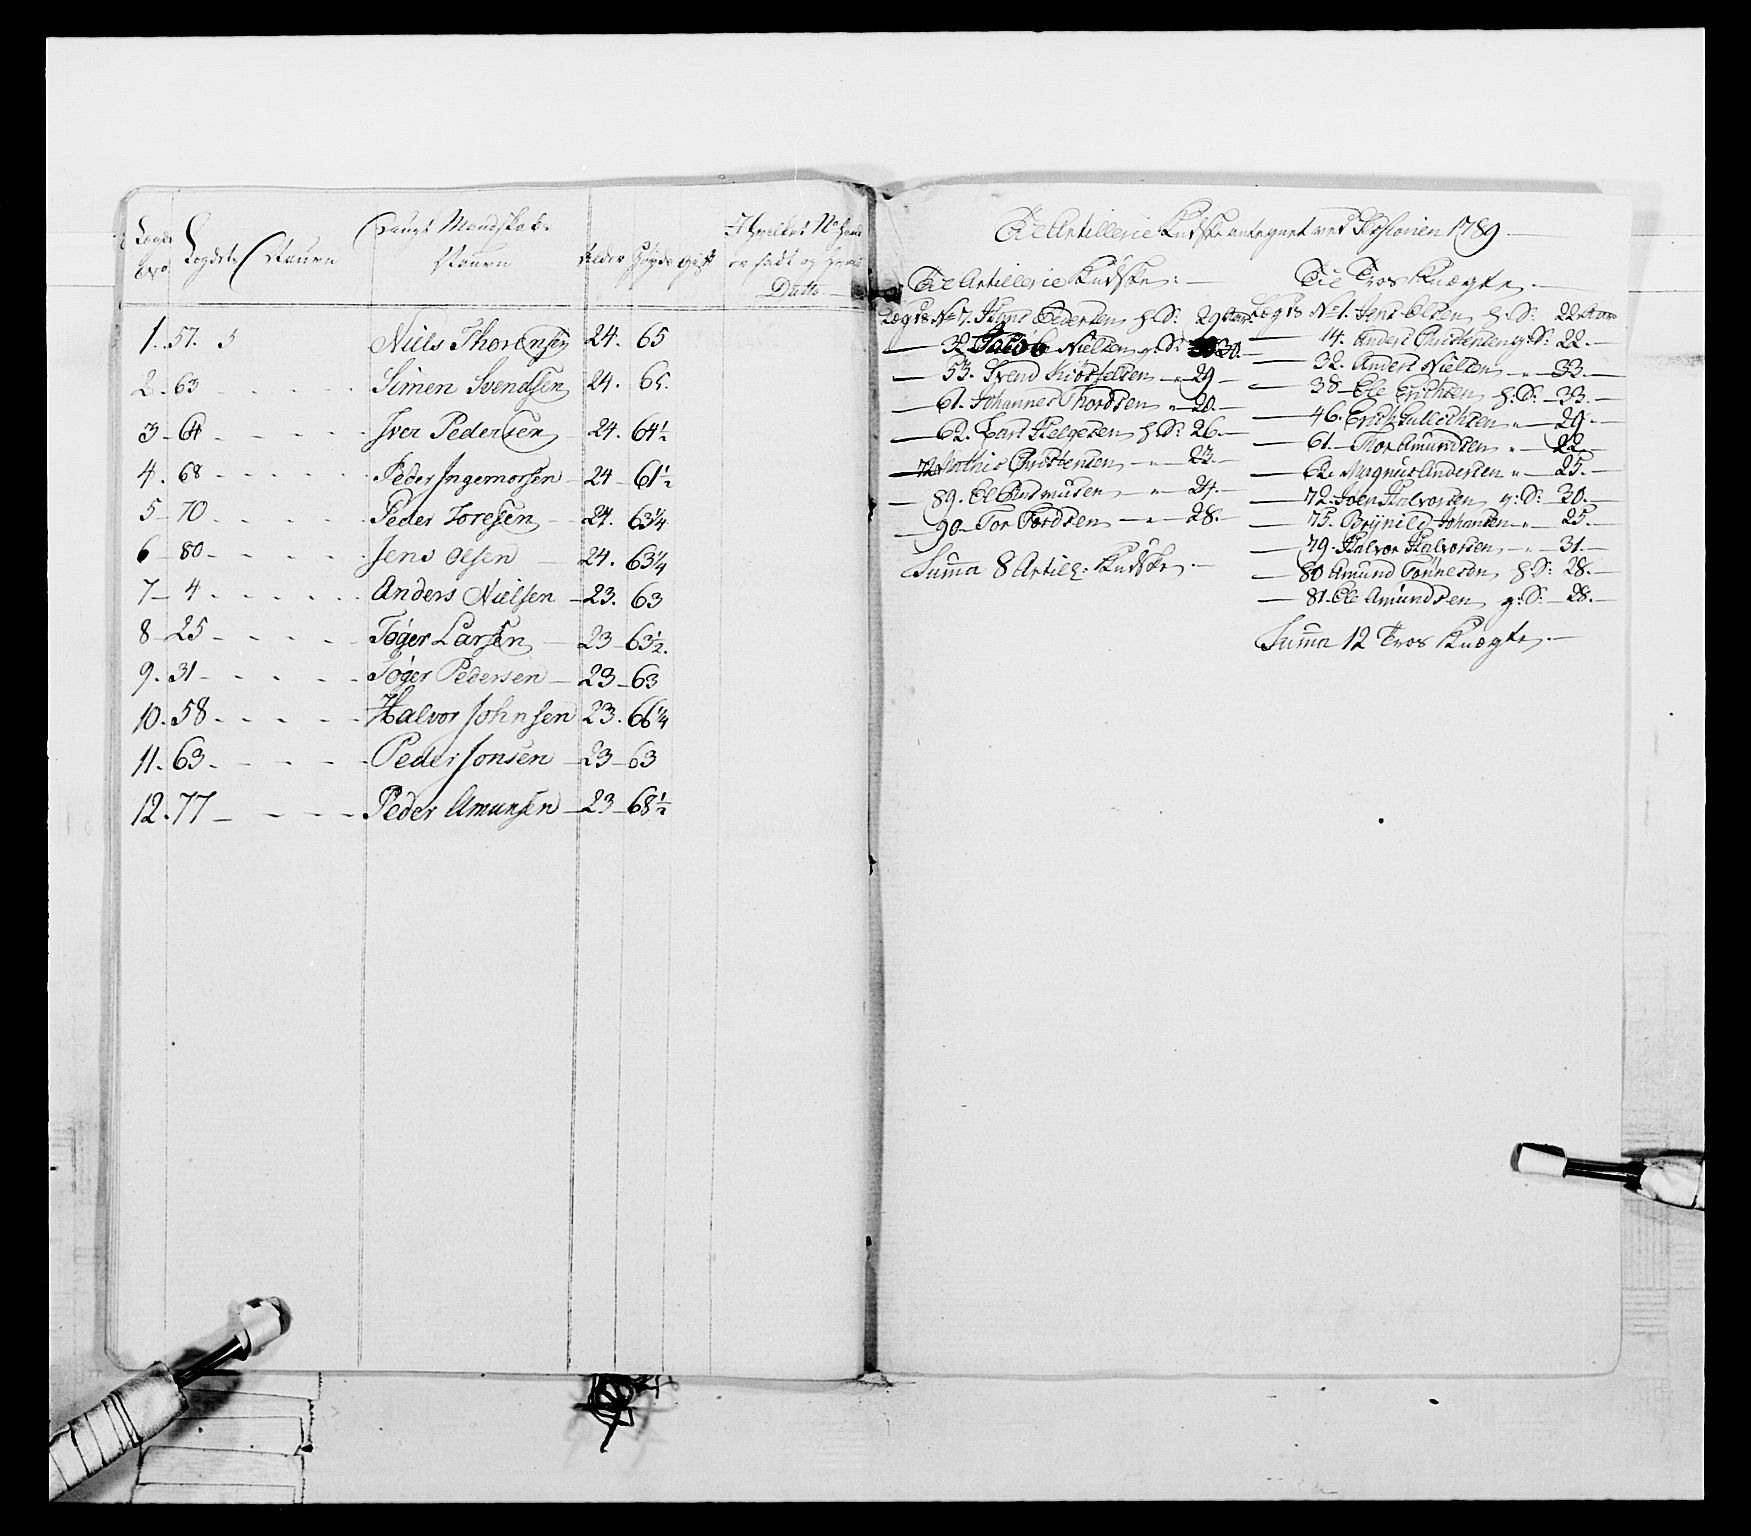 Lægds No
Lægdets Nauvn
Mandskabs Nauvn
Alder
Høyde
Gift
I hvilket No hand er født og hans Datto
1. 57. Niels Thorensen 24. 65
2. 63 Simen Svendsen 24. 65.
3. 64 Iver Pedersen 24. 64½
4. 68 Peder Ingemorsen 24 61½
5 70 Peder Toresen 24. 63¼
6 80 Jens Olsen 24. 63¼
7 4 Anders Nielsen 23. 63
8 25 Tøger Larsen 23 63½
9. 31 Tøger Pedersen 23 63
10. 58 Halvor Johnsen 23. 66¼
11. 63 Peder Jonsen 23 63
12. 77 Peder Amunsen 23 68½
Til Artillerie Kudske antegnet ved Sessionen 1789
Til Artillerie Kudske:
Lægds No 7. Hans Pedersen h: S: 29 Aar
32 Jacob Nielsen g: S: 30
53. Svend 29
61. Johannes Thordsen " 20.
62. Lars Helgesen h: S: 26.
72 Mathis Christensen " 23.
89. " 24.
90 Tor Tordsen " 28.
Summa 8 Artil: Kudske
Til Tros Knægte
Lægds No 1. Jens Olsen h: S: 22 Aar
14. Anders Christensen g: S: 22.
32. Anders Nielsen " 33.
38 Ole Erichsen h: S: 33.
46. Erich " 29.
61. Thor Amundsen " 22.
62. Magnus Andersen " 25.
72. Joen Halvorsen g: S: 30.
75. Brynild Johansen " 25.
79. Halvor Halvorsen " 31.
80 Amund Tønnesen h: S: 28.
81. Ole Amundsen g: S: 28.
Summa 12 Tros Knægte